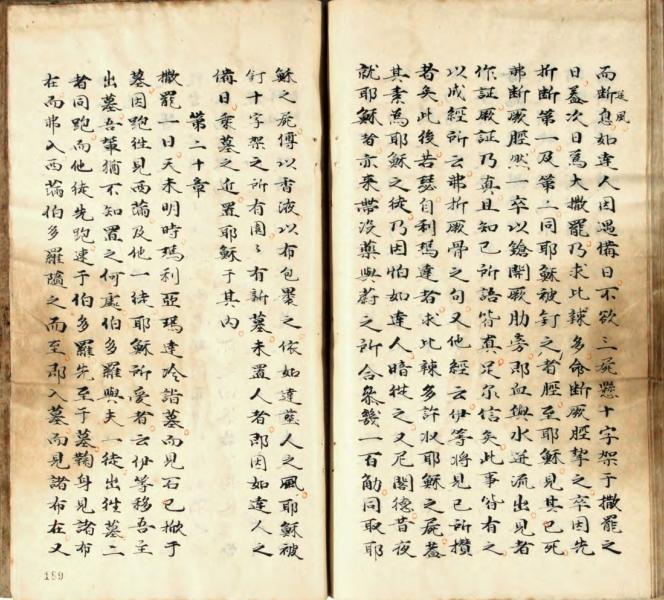 送風
而斷息如達人因遇備日不欲三屍懸十字架于撒罷之
日蓋次日為大撒罷乃求比辣多命斷厥脛挈之卒因先
折斷第一及第二同耶穌被釘之者脛至耶穌見其已死
弗斷厥脛然一卒以鎗開厥肋旁即血與水迸流出見者
作証厥証乃真且知己所語皆真足尔信矣此事皆有之
以成經所云弗折厥骨之句又他經云伊等將見己所攢
者矣此後若瑟自利瑪達者求比辣多許収耶穌之屍蓋
其素為耶穌之徒乃因怕如達人暗從之又尼閣德昔夜
就耶穌者亦來帶沒藥與蔚之所合幾一百觔同取耶
穌之屍傅以香液以布包裹之依如達塟人之風耶穌被
釘十字架之所有園〻有新墓未置人者即因如達人之
備日乗墓之近置耶穌于其內
第二十章
撒罷一日天未明時瑪利亞瑪達冷詣墓而見石已掀于
墓因跑徃見西滿及他一徒耶穌所愛者云伊等移吾主
出墓吾輩猶不知置之何處伯多羅與夫一徒出徃墓二
者同跑而他徒先跑速于伯多羅先至于墓鞠身見諸布
在而弗入西滿伯多羅隨之而至即入墓而見諸布在又
189